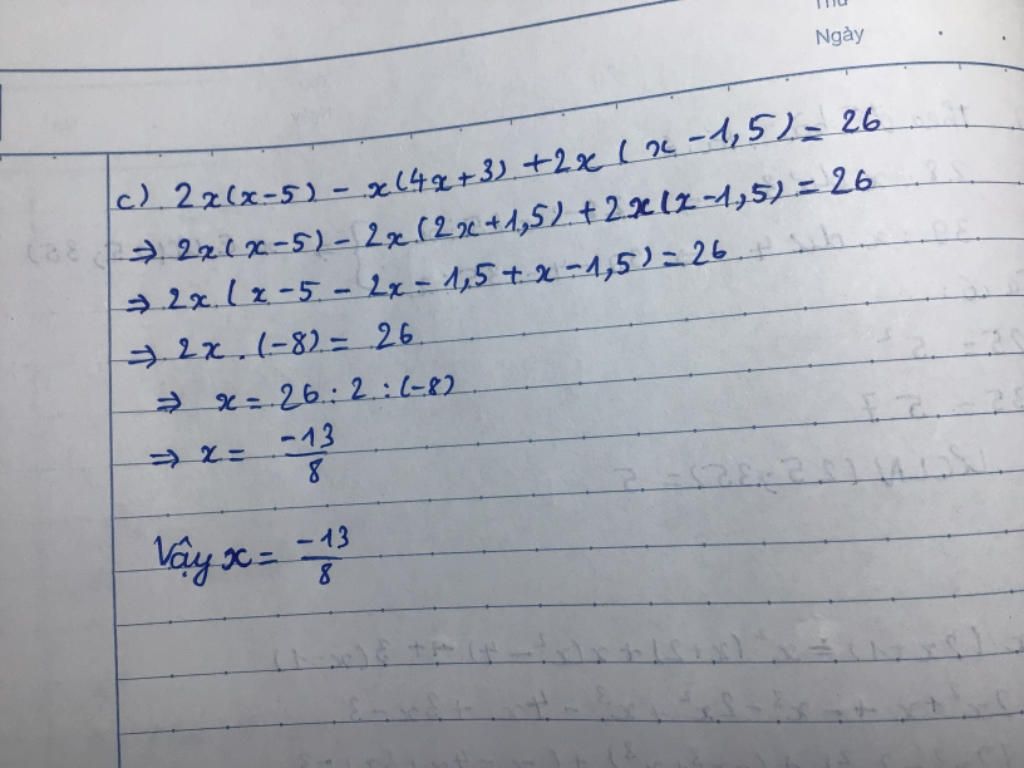 Thứ
Ngày
c) 2x(x-5) - x(4x+3) + 2x(x-1,5) = 26
⇒ 2x(x-5) - 2x(2x+1,5) + 2x(x-1,5) = 26
⇒ 2x(x-5-2x-1,5+x-1,5) = 26
⇒ 2x.(-8) = 26
⇒ x = 26:2:(-8)
⇒ x = \frac{-13}{8}
Vậy x = \frac{-13}{8}